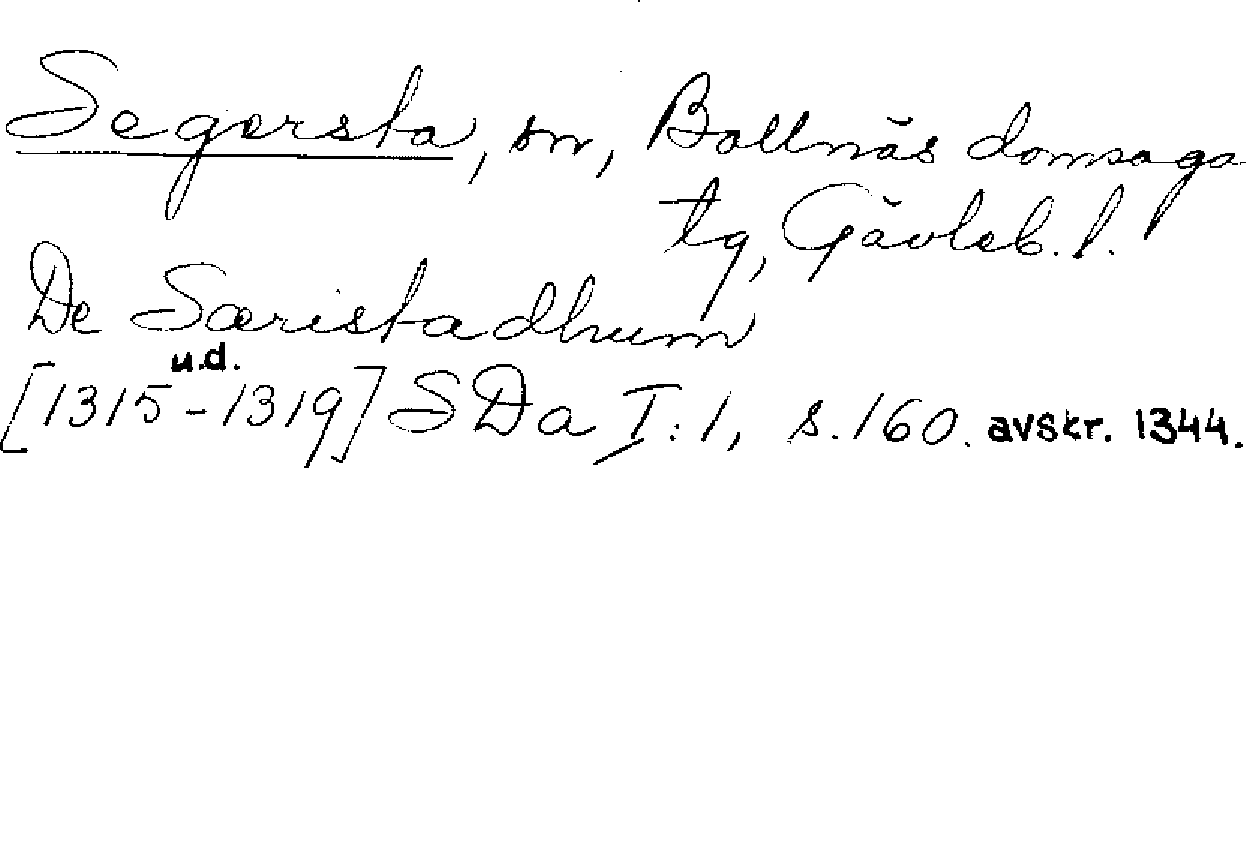 Segersta, sn, Bollnäs domsaga
tg, Gävleb. l.
De Særistadhum
u.d.
[1315-1319] SDa I:1, s. 160. avskr. 1344.